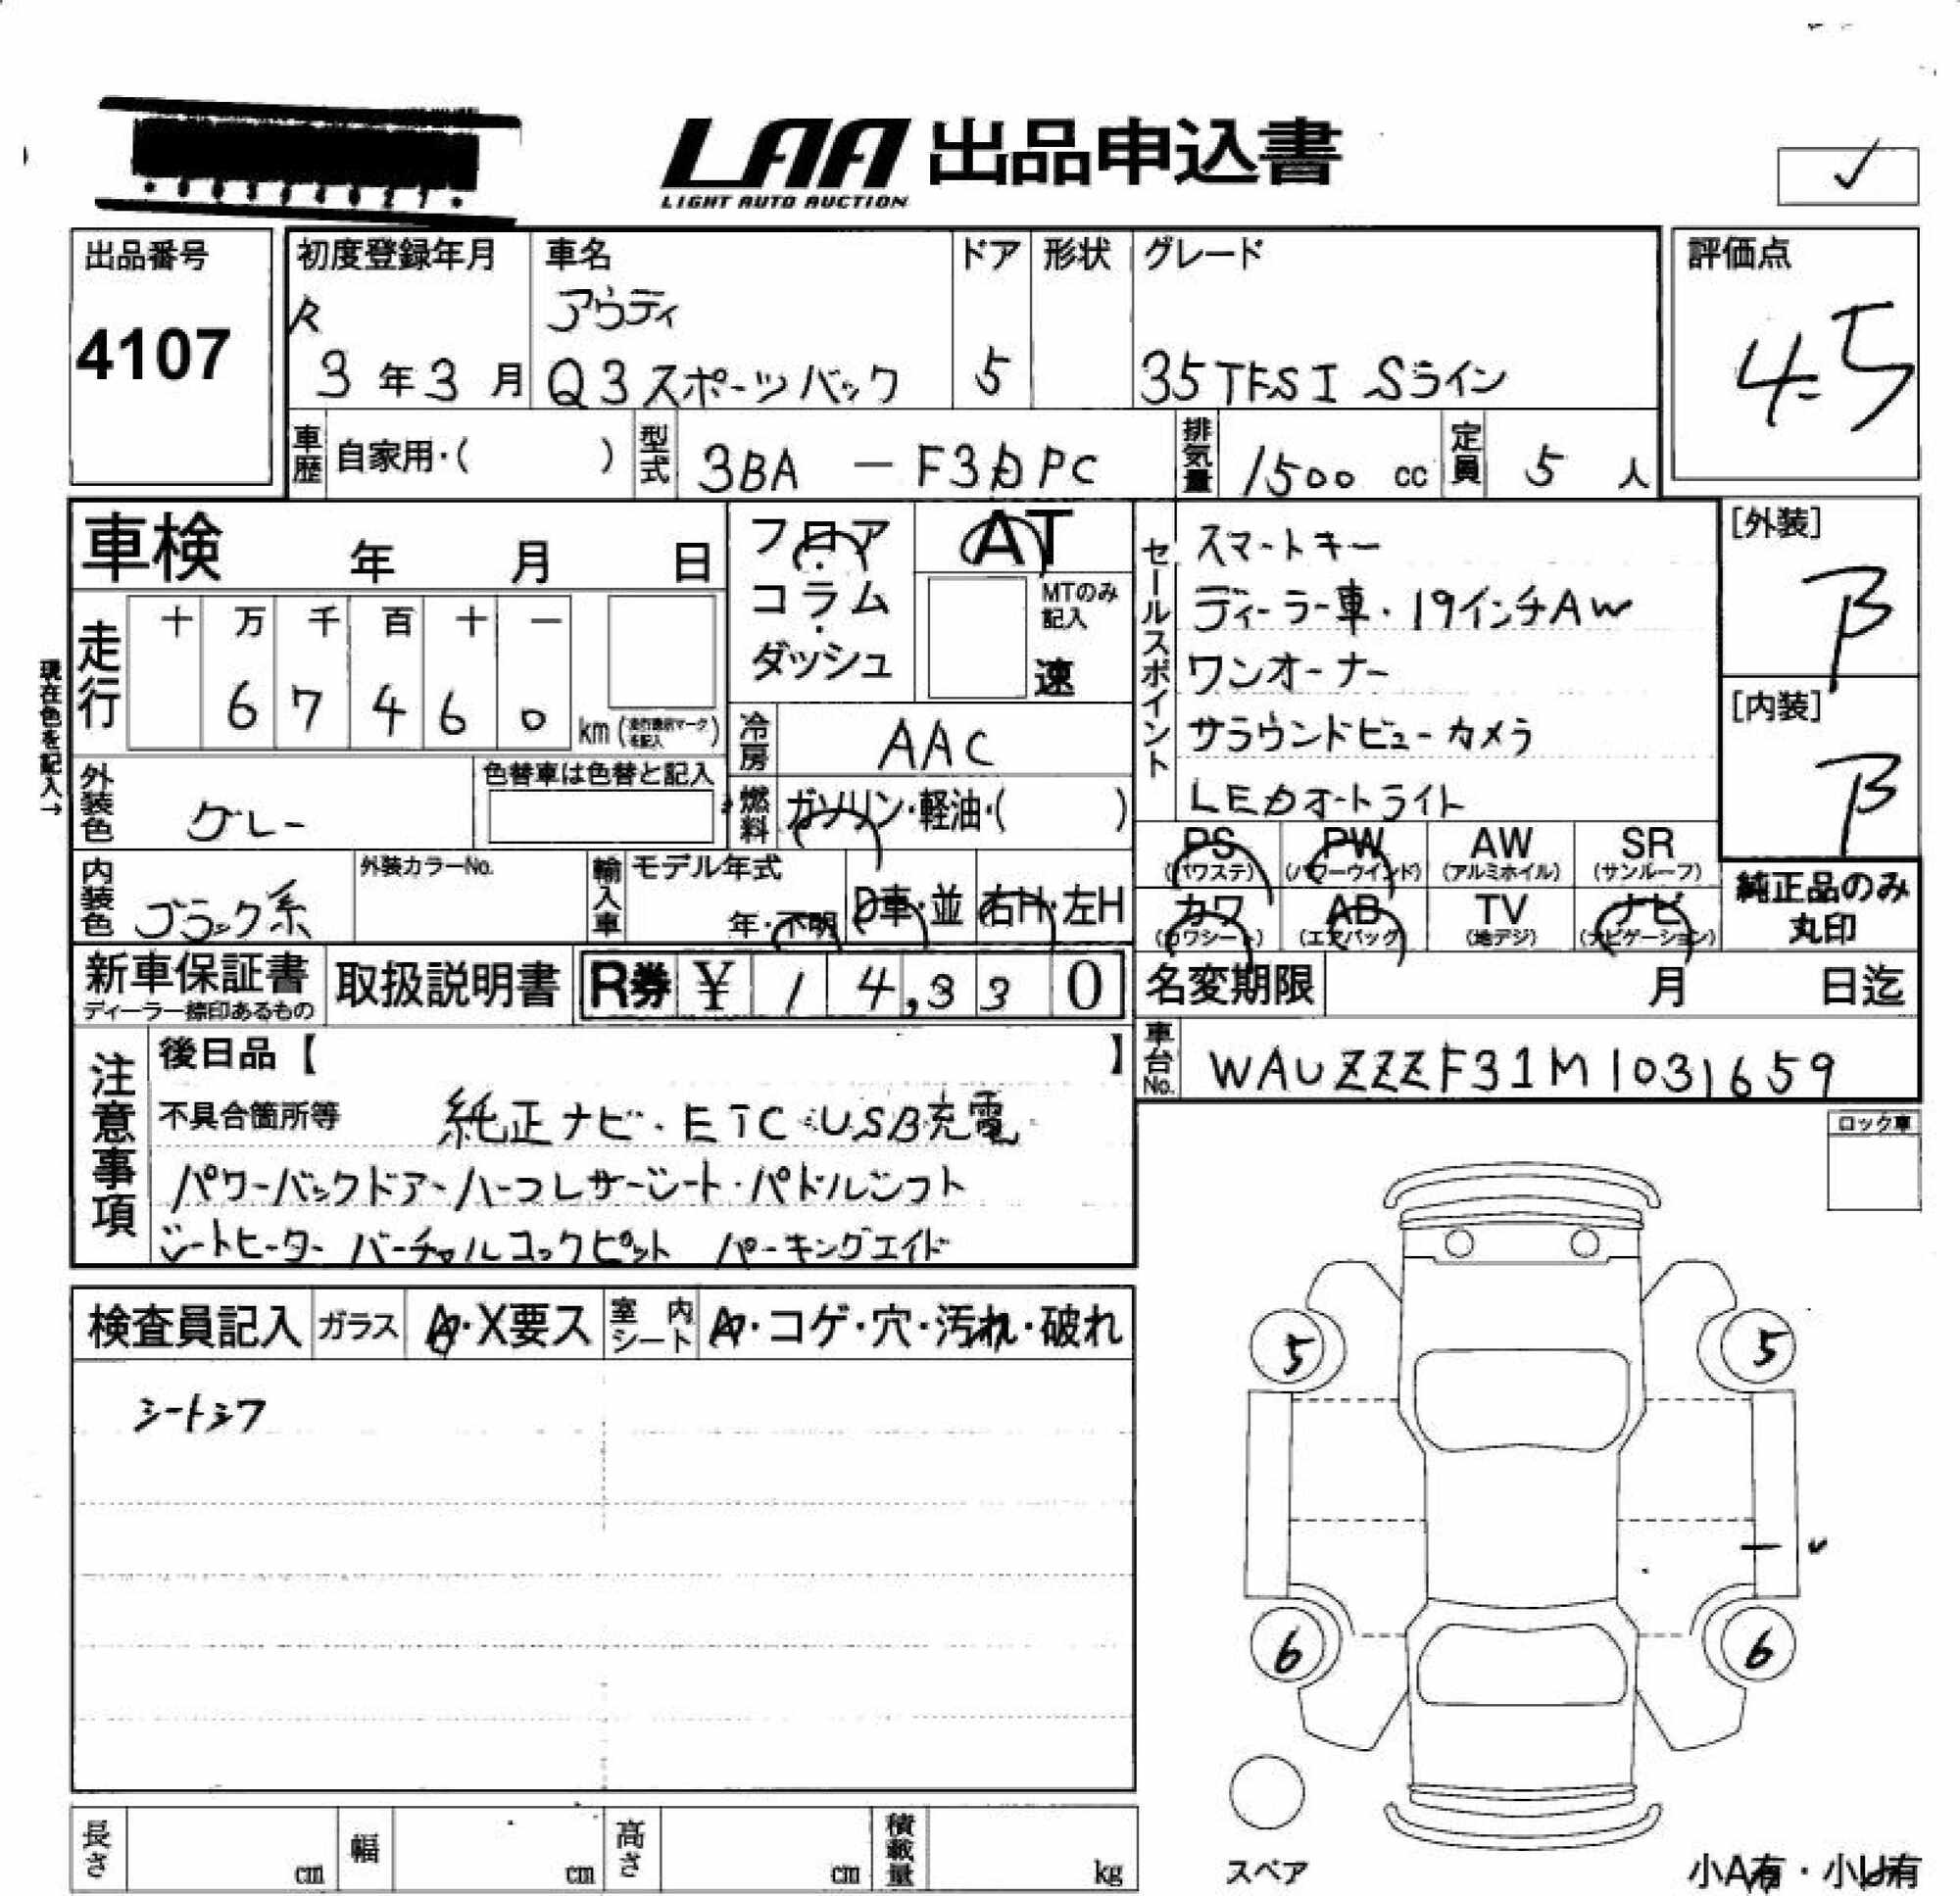 LAA 出品申込書
LIGHT AUTO AUCTION
✓
出品番号
4107
初度登録年月
R
3年3月
車名
アウディ
Q3スポーツバック
ドア
5
形状
グレード
35TFSI Sライン
評価点
4.5
車歴 自家用・( )
型式 3BA - F3DPC
排気量 1500 cc
定員 5 人
車検 年 月 日
フロア・コラム・ダッシュ
AT
MTのみ記入
速
セールスポイント
スマートキー
ディーラー車・19インチAW
ワンオーナー
サラウンドビューカメラ
LEDオートライト
[外装]
B
[内装]
B
現在色を記入→
走行
十 万 千 百 十 一
6 7 4 6 0
km
冷房 AAC
外装色 グレー
色替車は色替と記入
燃料 ガソリン・軽油・( )
内装色 ブラック系
外装カラーNo.
輸入車
モデル年式
年・不明
D車・並
右H・左H
PS (パワステ)
PW (パワーウインド)
AW (アルミホイル)
SR (サンルーフ)
カワ (カワシート)
AB (エアバッグ)
TV (地デジ)
ナビ (ナビゲーション)
純正品のみ丸印
新車保証書
ディーラー捺印あるもの
取扱説明書
R券 ¥ 1 4,3 3 0
名変期限 月 日迄
車台No. WAUZZZF31M1031659
注意事項
後日品【 】
不具合箇所等 純正ナビ・ETC・USB充電
パワーバックドア・ハーフレザーシート・パドルシフト
シートヒーター バーチャルコックピット パーキングエイド
ロック車
検査員記入
ガラス A・X要ス
室内シート A・コゲ・穴・汚れ・破れ
シートシワ
5
5
6
6
スペア
長さ cm
幅 cm
高さ cm
積載量 kg
小A有・小U有